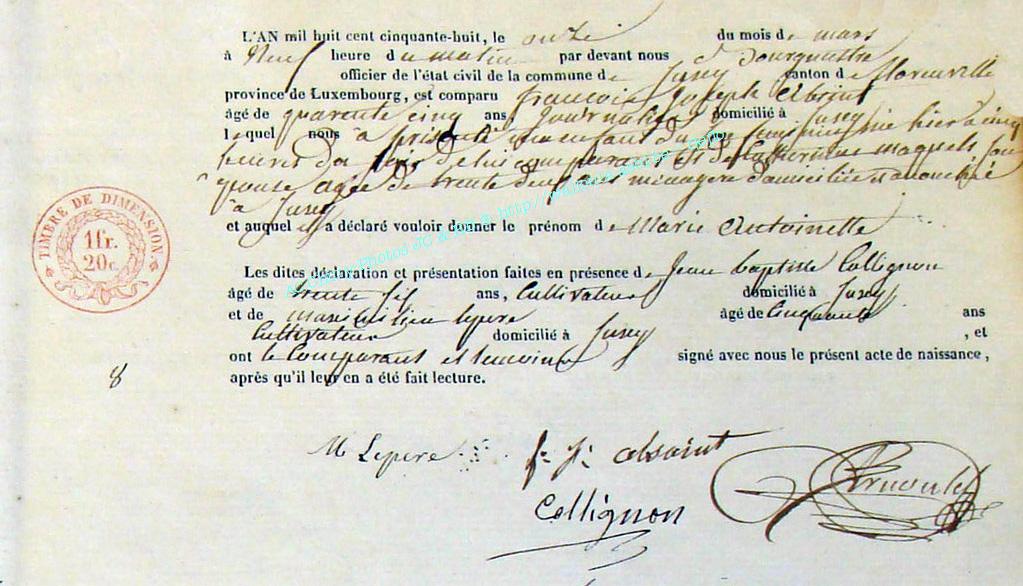 L'AN mil huit cent cinquante-huit, le onze du mois de mars
à Neuf heure du matin par devant nous Bourgmestre
officier de l'état civil de la commune de Jusey canton de florenville
province de Luxembourg, est comparu françois Joseph Absint
âgé de quarente cinq ans, Journalier domicilié à Jusey
lequel nous à présenté un enfant du sexe feminin né hier à cinq
heures du soir de lui comparant et de Catherine maquels son
épouse agée de trente deux ans ménagère domiciliée
à Jusey
et auquel il a déclaré vouloir donner le prénom de Marie Antoinette
Les dites déclaration et présentation faites en présence de Jean baptiste Collignon
âgé de trente six ans, Cultivateur domicilié à Jusey
et de maximilien lepere âgé de Cinquante ans
Cultivateur domicilié à Jusey , et
ont le Comparant et temoins signé avec nous le présent acte de naissance,
après qu'il leur en a été fait lecture.
TIMBRE DE DIMENSION
1 fr.
20 c.
8
M Lepere
f. J. absaint
Collignon